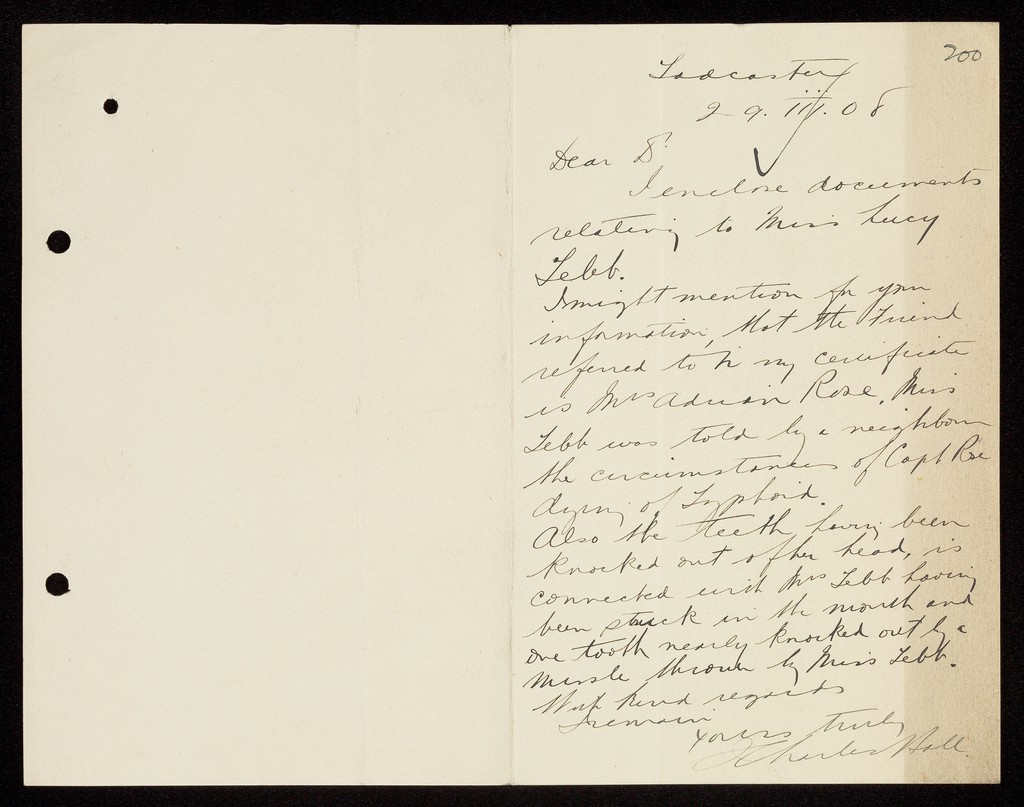 200
Tadcaster
29.iii.08
Dear Dr.
I enclose documents
relating to Miss Lucy
Tebb.
I might mention for your
information, that the Friend
referred to in my certificate
is Mrs Adrian Rose. Miss
Tebb was told by a neighbour
the circumstances of Capt Rose
dying of Typhoid.
Also the teeth having been
knocked out of her head, is
connected with Mrs Tebb having
been struck in the mouth and
one tooth nearly knocked out by a
missle thrown by Miss Tebb.
With kind regards
I remain
Yours truly
Charles Hall.